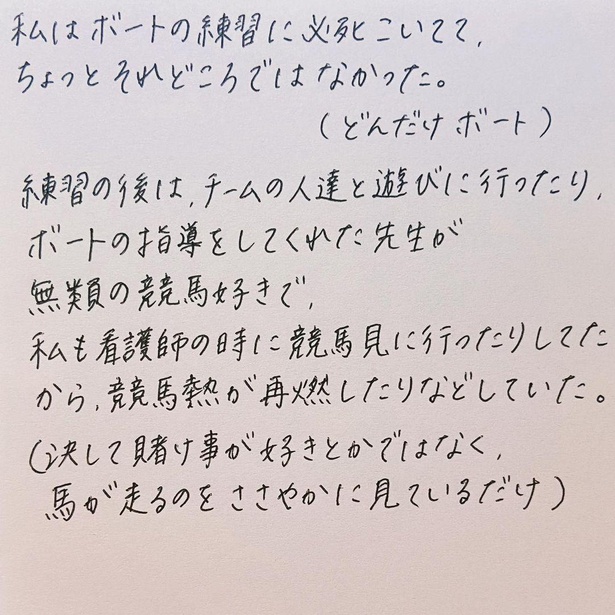 私はボートの練習に必死こいてて、
ちょっとそれどころではなかった。
(どんだけボート)
練習の後は、チームの人達と遊びに行ったり、
ボートの指導をしてくれた先生が
無類の競馬好きで、
私も看護師の時に競馬見に行ったりしてた
から、競馬熱が再燃したりなどしていた。
(決して賭け事が好きとかではなく、
馬が走るのをささやかに見ているだけ)